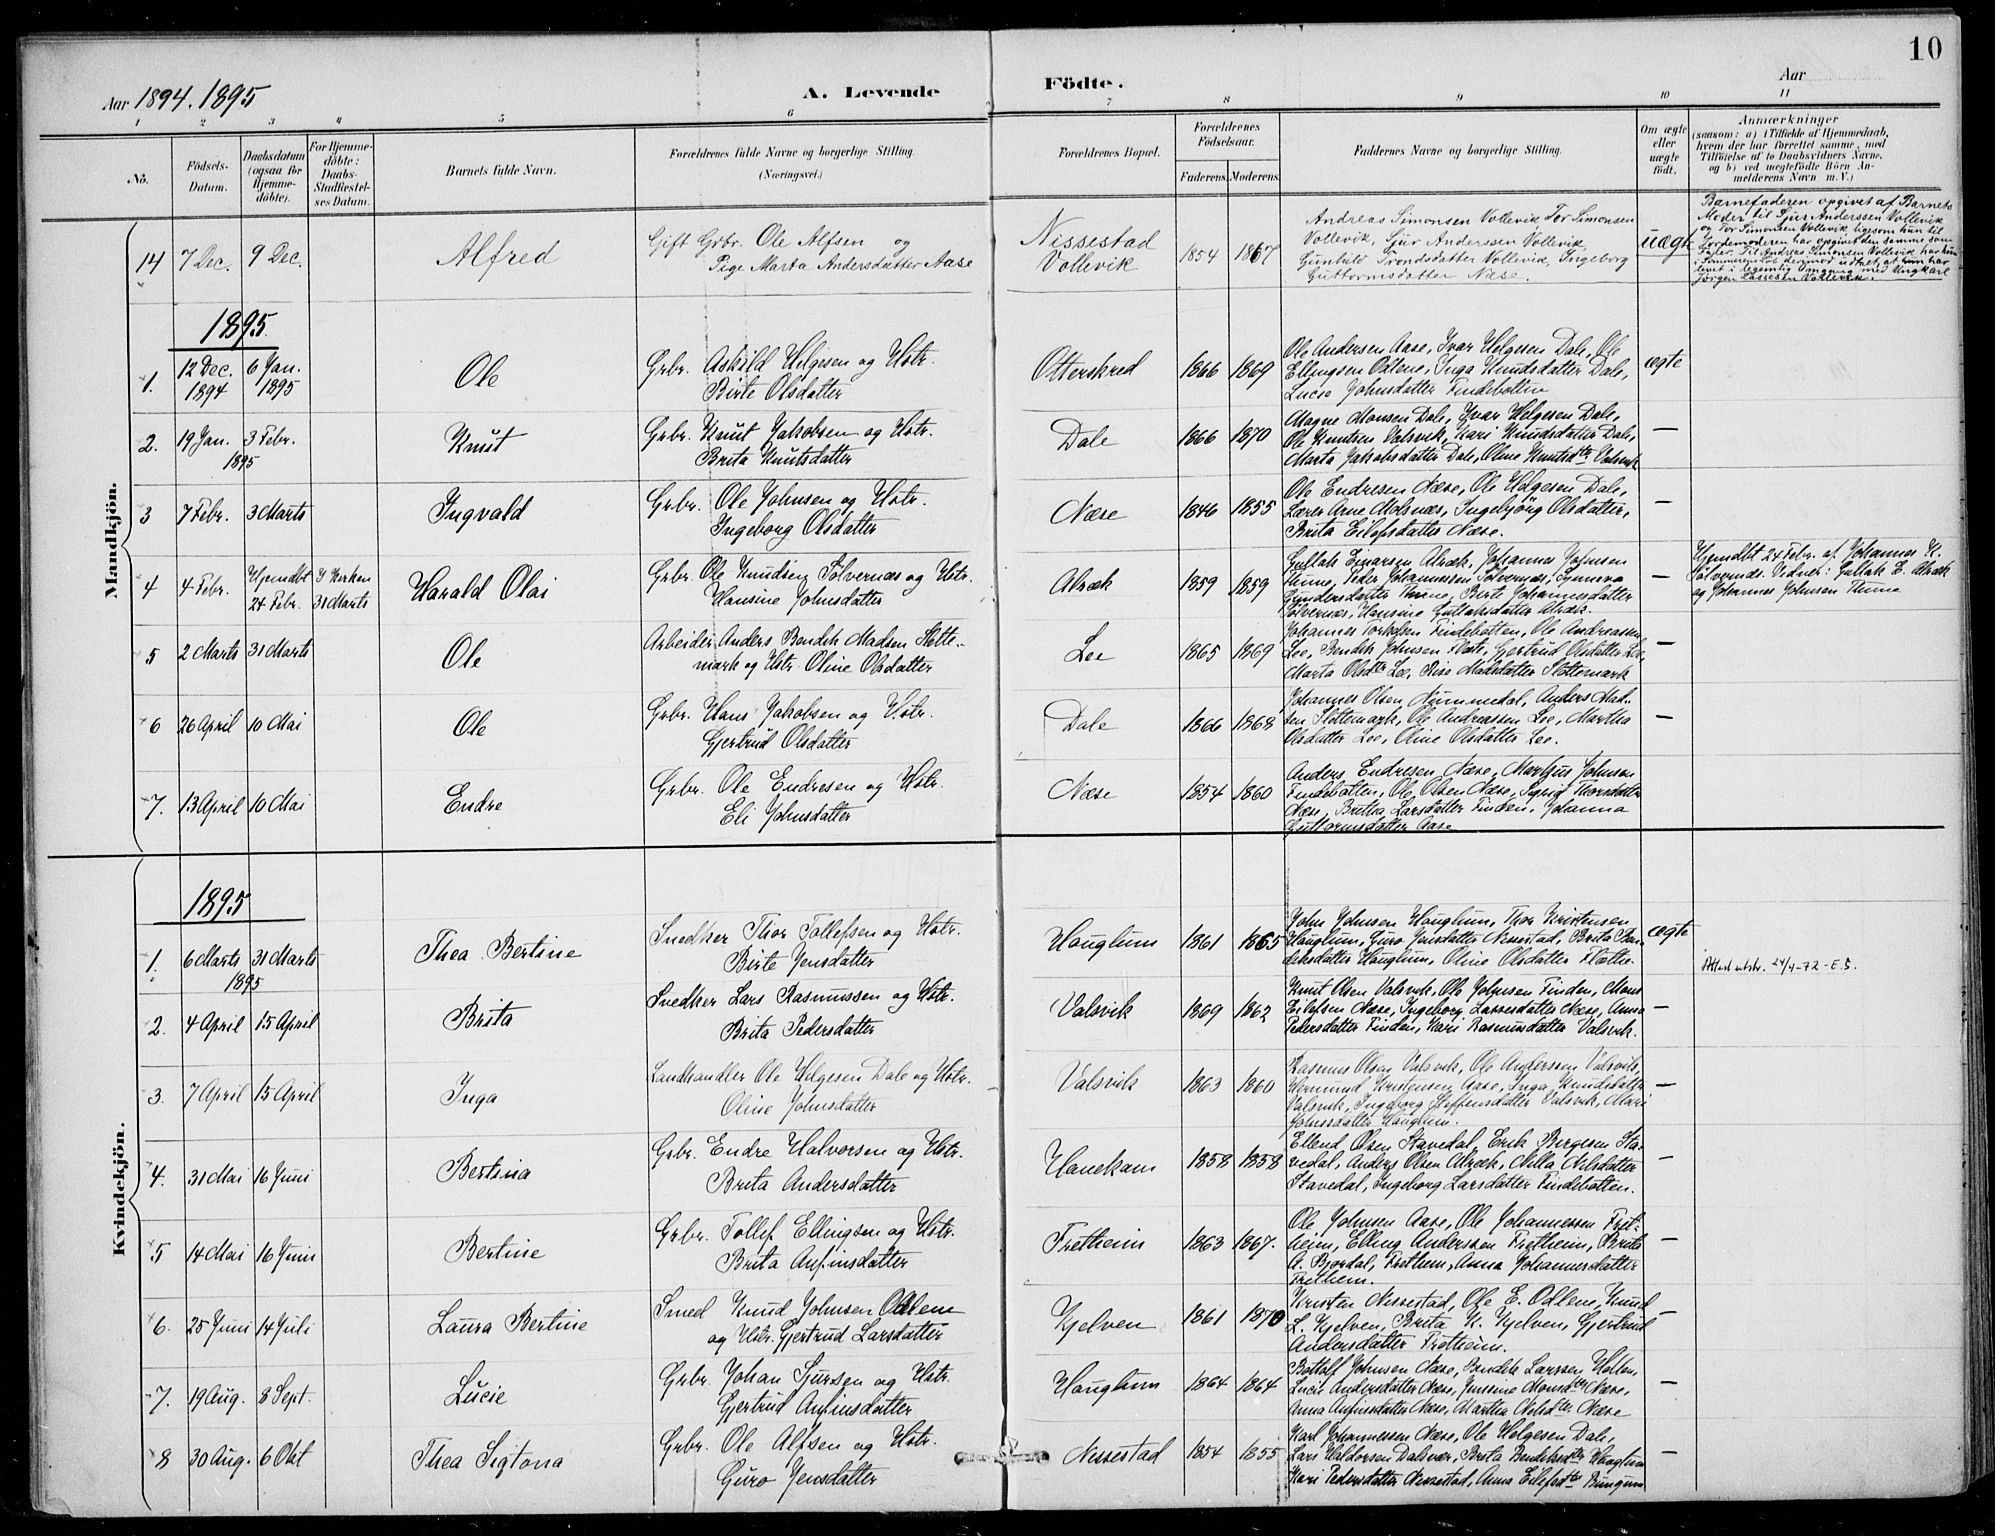 10
Aar 1894. 1895
A. Levende
Födte.
Aar
1 2 3 4 5 6 7 8 9 10 11
No.
Födsels-Datum.
Daabsdatum (ogsaa for Hjemmedöbte).
For Hjemmedöbte: Daabs-Stadfæstelses Datum.
Barnets fulde Navn.
Forældrenes fulde Navne og borgerlige Stilling. (Næringsvei.)
Forældrenes Bopæl.
Forældrenes Födselsaar.
Faderens. Moderens.
Faddernes Navne og borgerlige Stilling.
Om ægte eller uægte födt.
Anmærkninger
(saasom: a) i Tilfælde af Hjemmedaab, hvem der har forrettet samme, med Tilföielse af to Daabsvidners Navne, og b) ved uægtefödte Börn Anmelderens Navn m. V.)
Mandkjön.
14 7 Dec. 9 Dec. Alfred
Gift Grbr. Ole Alfsen og
Pige Marta Andersdatter Aase
Nissestad
Vollevik
1854 1867
Andreas Simonsen Vollevik Tor Simonsen
Vollevik, Sjur Anderssen Vollevik,
Gunhild Trondsdatter Vollevik, Ingeborg
Guttormsdatter Næse.
uægte
Barnefaderen opgivet af Barnets
Moder til Sjur Anderssen Vollevik
og Tor Simonsen Vollevik ligesom hun til
Jordemoderen har opgivet den samme som
Fader. Til Andreas Simonsen Vollevik har hun
levet i legemlig Omgang med Ungkarl
Jörgen Lassesen Vollevik.
1895
1. 12 Dec. 1894 6 Jan. 1895 Ole
Grbr. Askild Helgesen og Hstr.
Birte Olsdatter
Otterskred 1866 1869
Ole Andersen Aase, Ivar Helgesen Dale, Ole
Ellingsen Odlene, Inga Knudsdatter Dale,
Lucie Johnsdatter Findebotten
ægte
2. 19 Jan. 3 Febr. 1895 Knut
Grbr. Knut Jakobsen og Hstr.
Brita Knutsdatter
Dale 1866 1870
Magne Monsen Dale, Ivar Helgesen Dale,
Ole Knutsen Valsvik, Kari Knudsdatter Dale,
Marta Jakobsdatter Dale, Oline Knutsdtr Valsvik
—
3 7 Febr. 3 Marts Ingvald
Grbr. Ole Johnsen og Hstr.
Ingeborg Olsdatter
Næse 1846 1855
Ole Endresen Næse, Ole Helgesen Dale,
Lærer Arne Molsnæs, Ingebjörg Olsdatter,
Brita Eilefsdatter Næse.
—
4 4 Febr. Hjemdbt 24 Febr. I Kirken 31 Marts Harald Olai
Grbr. Ole Knudsen Sölvernæs og Hstr.
Hansine Johnsdatter
Alræk 1859 1859
Gullak Einarsen Alræk, Johannes Johnsen
Thinne, Peder Johannessen Sölvernæs, Synneva
Gundersdatter Thinne, Birte Johannesdatter
Sölvernæs, Hansine Gullaksdatter Alræk.
—
Hjemdbt 24 Febr. af Johannes K.
Sölvernæs. Vidner: Gullak E. Alræk
og Johannes Johnsen Thinne
5 2 Marts 31 Marts Ole
Arbeider Anders Bendik Madsen Slotte-
mark og Hstr. Oline Olsdatter
Lee 1865 1869
Johannes Torkelsen Findebotten, Ole Andreassen
Lee, Bendik Johnsen Flæte, Gjertrud Olsdatter Lee,
Marta Olsdtr Lee, Risa Madsdatter Slottemark
—
6 26 April 10 Mai Ole
Grbr. Hans Jakobsen og Hstr.
Gjertrud Olsdatter
Dale 1866 1868
Johannes Olsen Nummedal, Anders Mad-
sen Slottemark, Ole Andreassen Lee, Martha
Olsdatter Lee, Oline Olsdatter Lee.
—
7. 13 April 10 Mai Endre
Grbr. Ole Endresen og Hstr.
Eli Johnsdatter
Næse 1854 1860
Anders Endresen Næse, Markus Johnsen
Findebotten, Ole Olsen Næse, Sigrid Thorsdatter
Næse, Britha Larsdatter Finden, Johanna
Guttormsdatter Aase
Kvindekjön.
1895
1. 6 Marts 1895 31 Marts Thea Bertine
Snedker Thor Tollefsen og Hstr.
Birte Jensdatter
Hauglum 1861 1865
John Johnsen Hauglum, Thor Kristensen
Hauglum, Guro Jensdatter Nissestad, Brita Ben-
diksdatter Hauglum, Oline Olsdatter Flætten.
ægte
Attest utstr. 24/4-72 - E.S.
2. 4 April 15 April Brita
Snedker Lars Rasmussen og Hstr.
Brita Pedersdatter
Valsvik 1869 1862
Knut Olsen Valsvik, Ole Johnsen Finden, Mons
Eilefsen Næse, Ingeborg Lassesdatter Næse, Anna
Pedersdatter Finden, Kari Rasmusdatter Valsvik.
—
3. 7 April 15 April Inga
Landhandler Ole Helgesen Dale og Hstr.
Oline Johnsdatter
Valsvik 1863 1860
Rasmus Olsen Valsvik, Ole Anderssen Valsvik,
Hermund Kristensen Aase, Inga Knudsdatter
Valsvik, Ingeborg Steffensdatter Valsvik, Mari
Johnsdatter Hauglum.
—
4. 31 Mai 16 Juni Bertina
Grbr. Endre Halvorsen og Hstr.
Brita Andersdatter
Hanekam 1858 1858
Ellend Olsen Stavedal, Erik Børgesen Sta-
vedal, Anders Olsen Alræk, Nilla Nilsdatter
Stavedal, Ingeborg Larsdatter Findebotten.
—
5 14 Mai 16 Juni Bertine
Grbr. Tollef Ellingsen og Hstr.
Brita Anfinsdatter
Fretheim 1863 1867.
Ole Johnsen Aase, Ole Johannessen Fret-
heim, Elling Anderssen Fretheim, Brita
A. Bjordal, Fretheim, Anna Johannesdatter
Fretheim.
—
6. 25 Juni 14 Juli Laura Bertine
Smed Knud Johnsen Odlene
og Hstr. Gjertrud Larsdatter
Kjelven 1861 1870
Kristen Nissestad, Ole E. Odlene, Knud
L. Kjelven, Brita K. Kjelven, Gjertrud
Andersdatter Fretheim.
—
7. 19 Aug. 8 Sept. Lucie
Grbr. Johan Sjursen og Hstr.
Gjertrud Anfinsdatter
Hauglum 1864 1864
Bottolf Johnsen Næse, Bendik Larssen Holten,
Lucie Andersdatter Næse, Jensine Monsdtr Næse,
Anna Anfinsdatter Næse, Martha Nilsdtr. Næse
—
8 30 Aug. 6 Okt Thea Sigtona
Grbr. Ole Alfsen og Hstr.
Guro Jensdatter
Nissestad 1854 1855
Karl Johannessen Næse, Ole Helgesen Dale,
Lars Haldorsen Dalsvær, Brita Bendiksdtr Hauglum
Kari Pedersdatter Nissestad, Anna Eilefsdtr Bungum
—